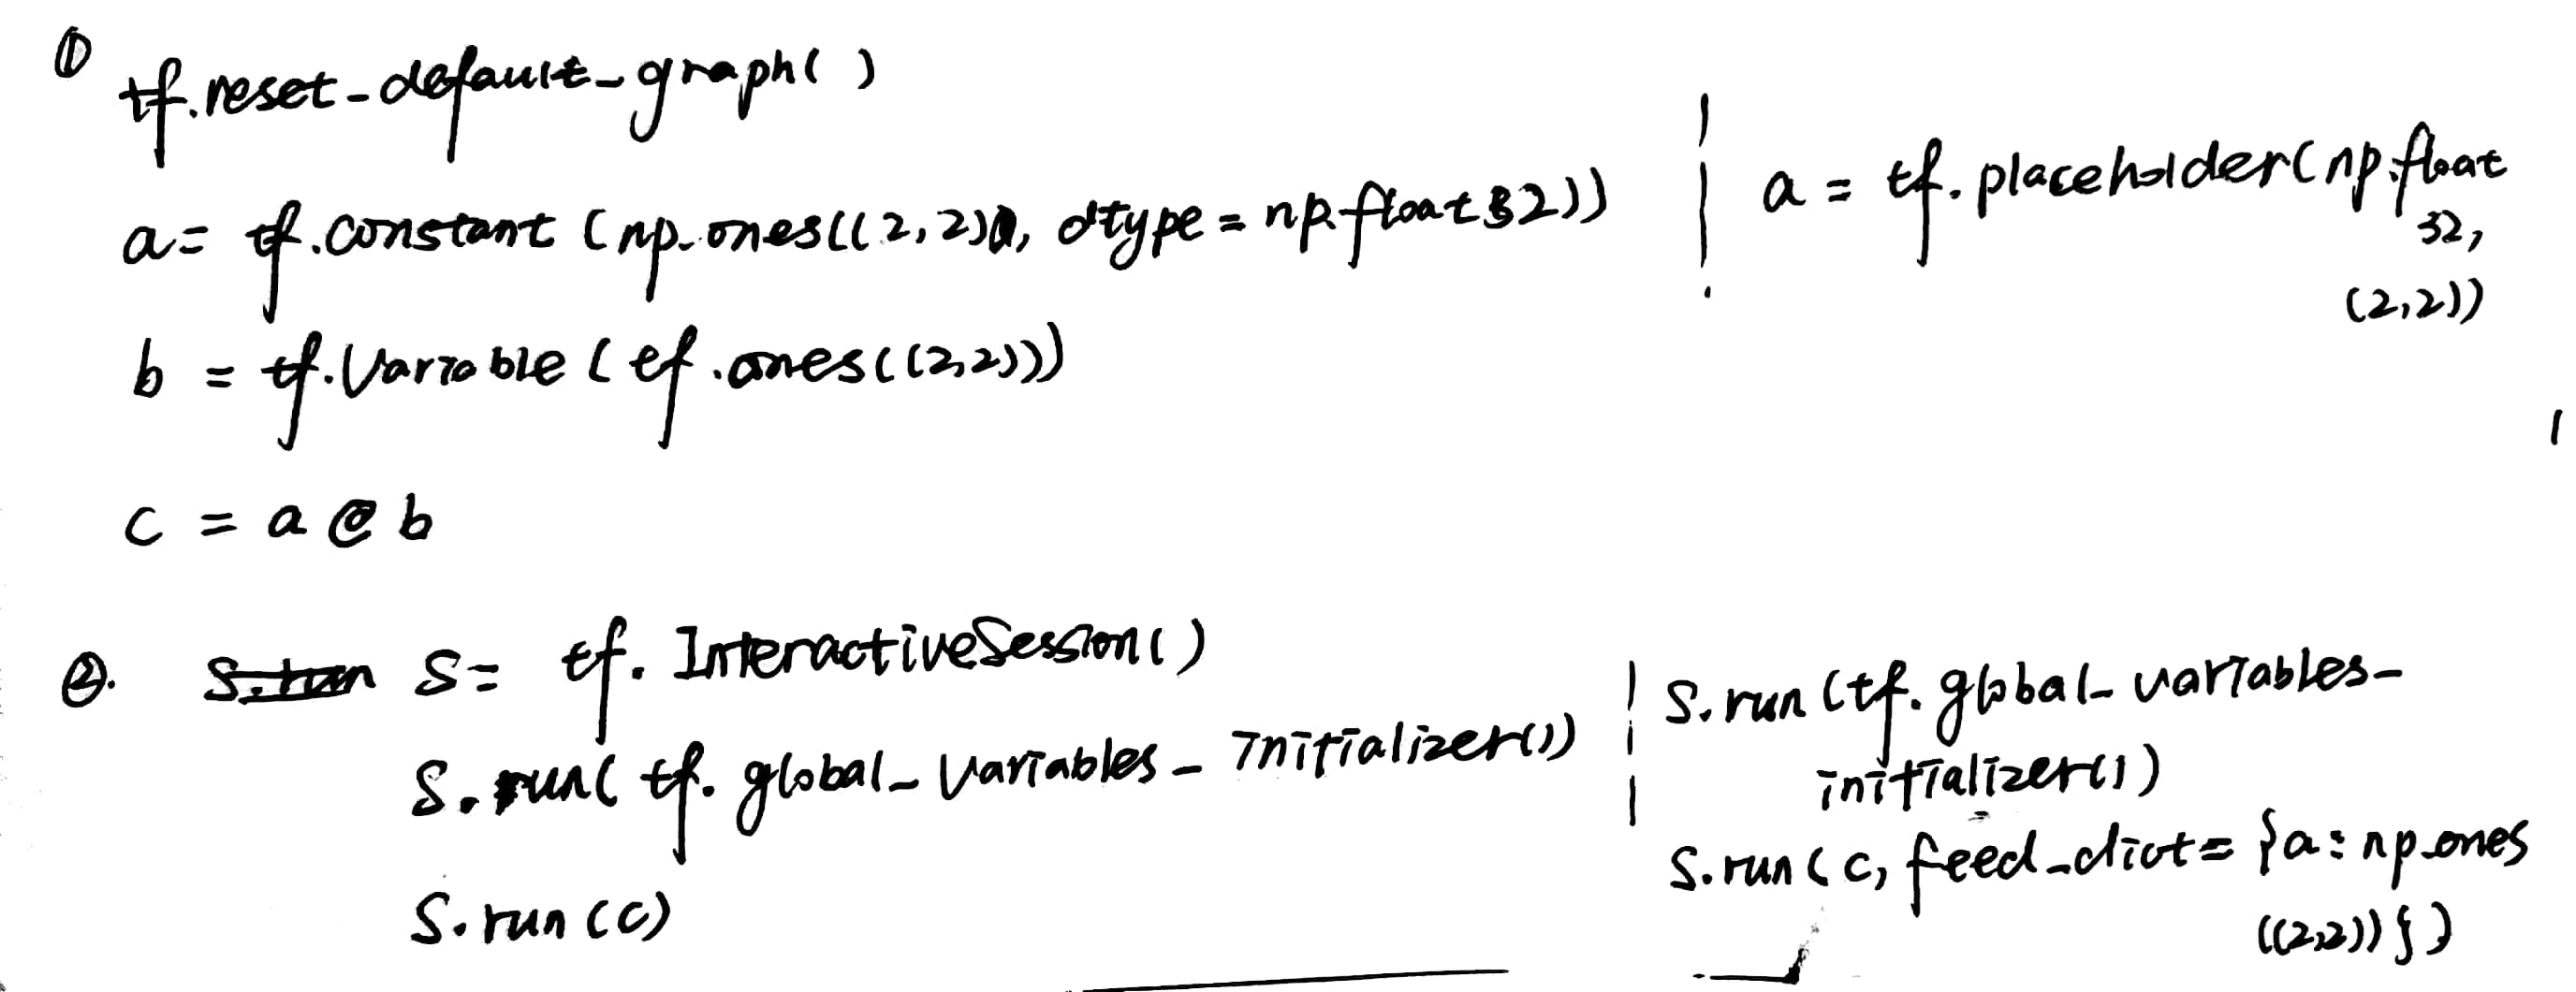 ①
tf.reset_default_graph( )
a = tf.constant (np.ones((2,2), dtype = np.float32))
a = tf.placeholder(np.float
32,
(2,2))
b = tf.Variable (tf.ones((2,2)))
c = a @ b
②. S.run S = tf. InteractiveSession( )
S. run( tf. global_variables_initializer())
S.run(c)
S.run (tf. global_variables_
initializer())
S.run(c, feed_dict = {a: np.ones
((2,2))})